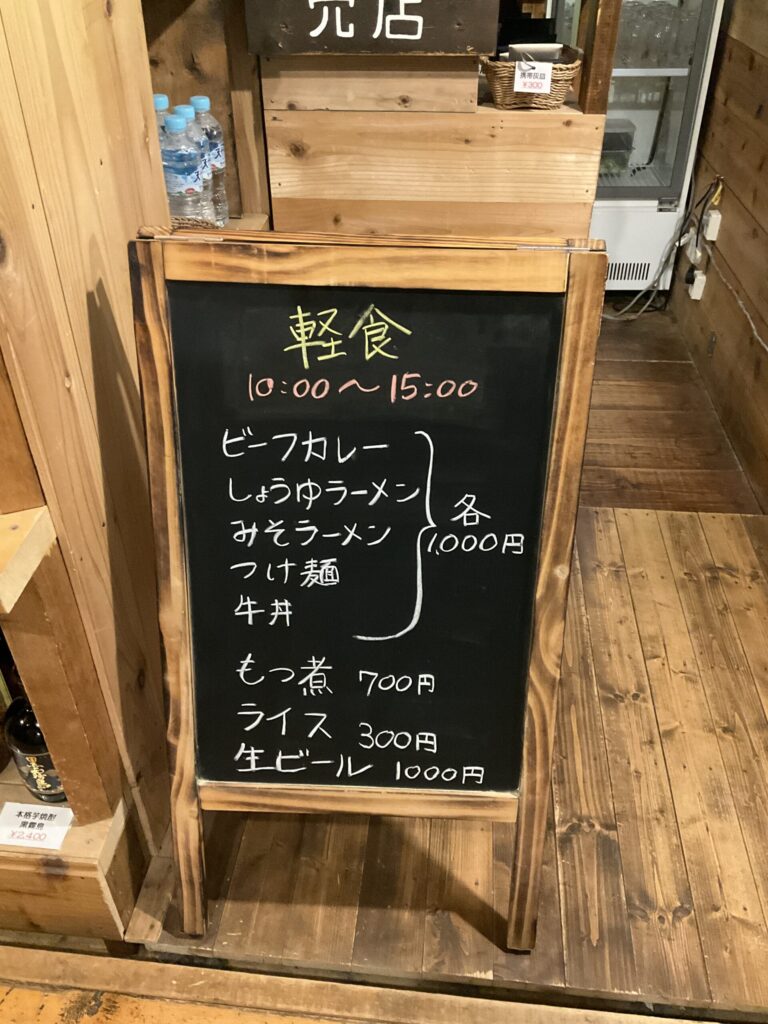 売店
携帯灰皿
¥300
軽食
10:00〜15:00
ビーフカレー
しょうゆラーメン
みそラーメン
つけ麺
牛丼
各
1,000円
もつ煮 700円
ライス 300円
生ビール 1000円
本格芋焼酎
黒霧島
¥2,400